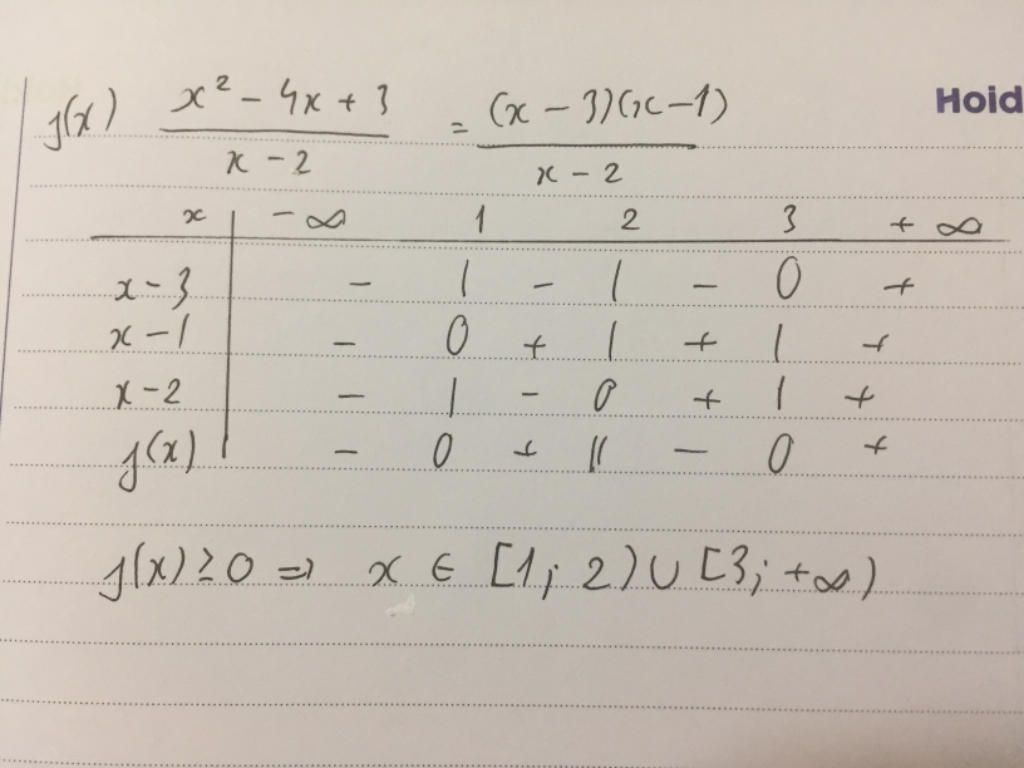 f(x) x² - 4x + 3 / x - 2 = (x - 3)(x - 1) / x - 2
Hoid
x - ∞ 1 2 3 + ∞
x - 3 - | - | - 0 +
x - 1 - 0 + | + | +
x - 2 - | - 0 + | +
f(x) - 0 + || - 0 +
f(x) ≥ 0 ⇒ x ∈ [1; 2) ∪ [3; +∞)